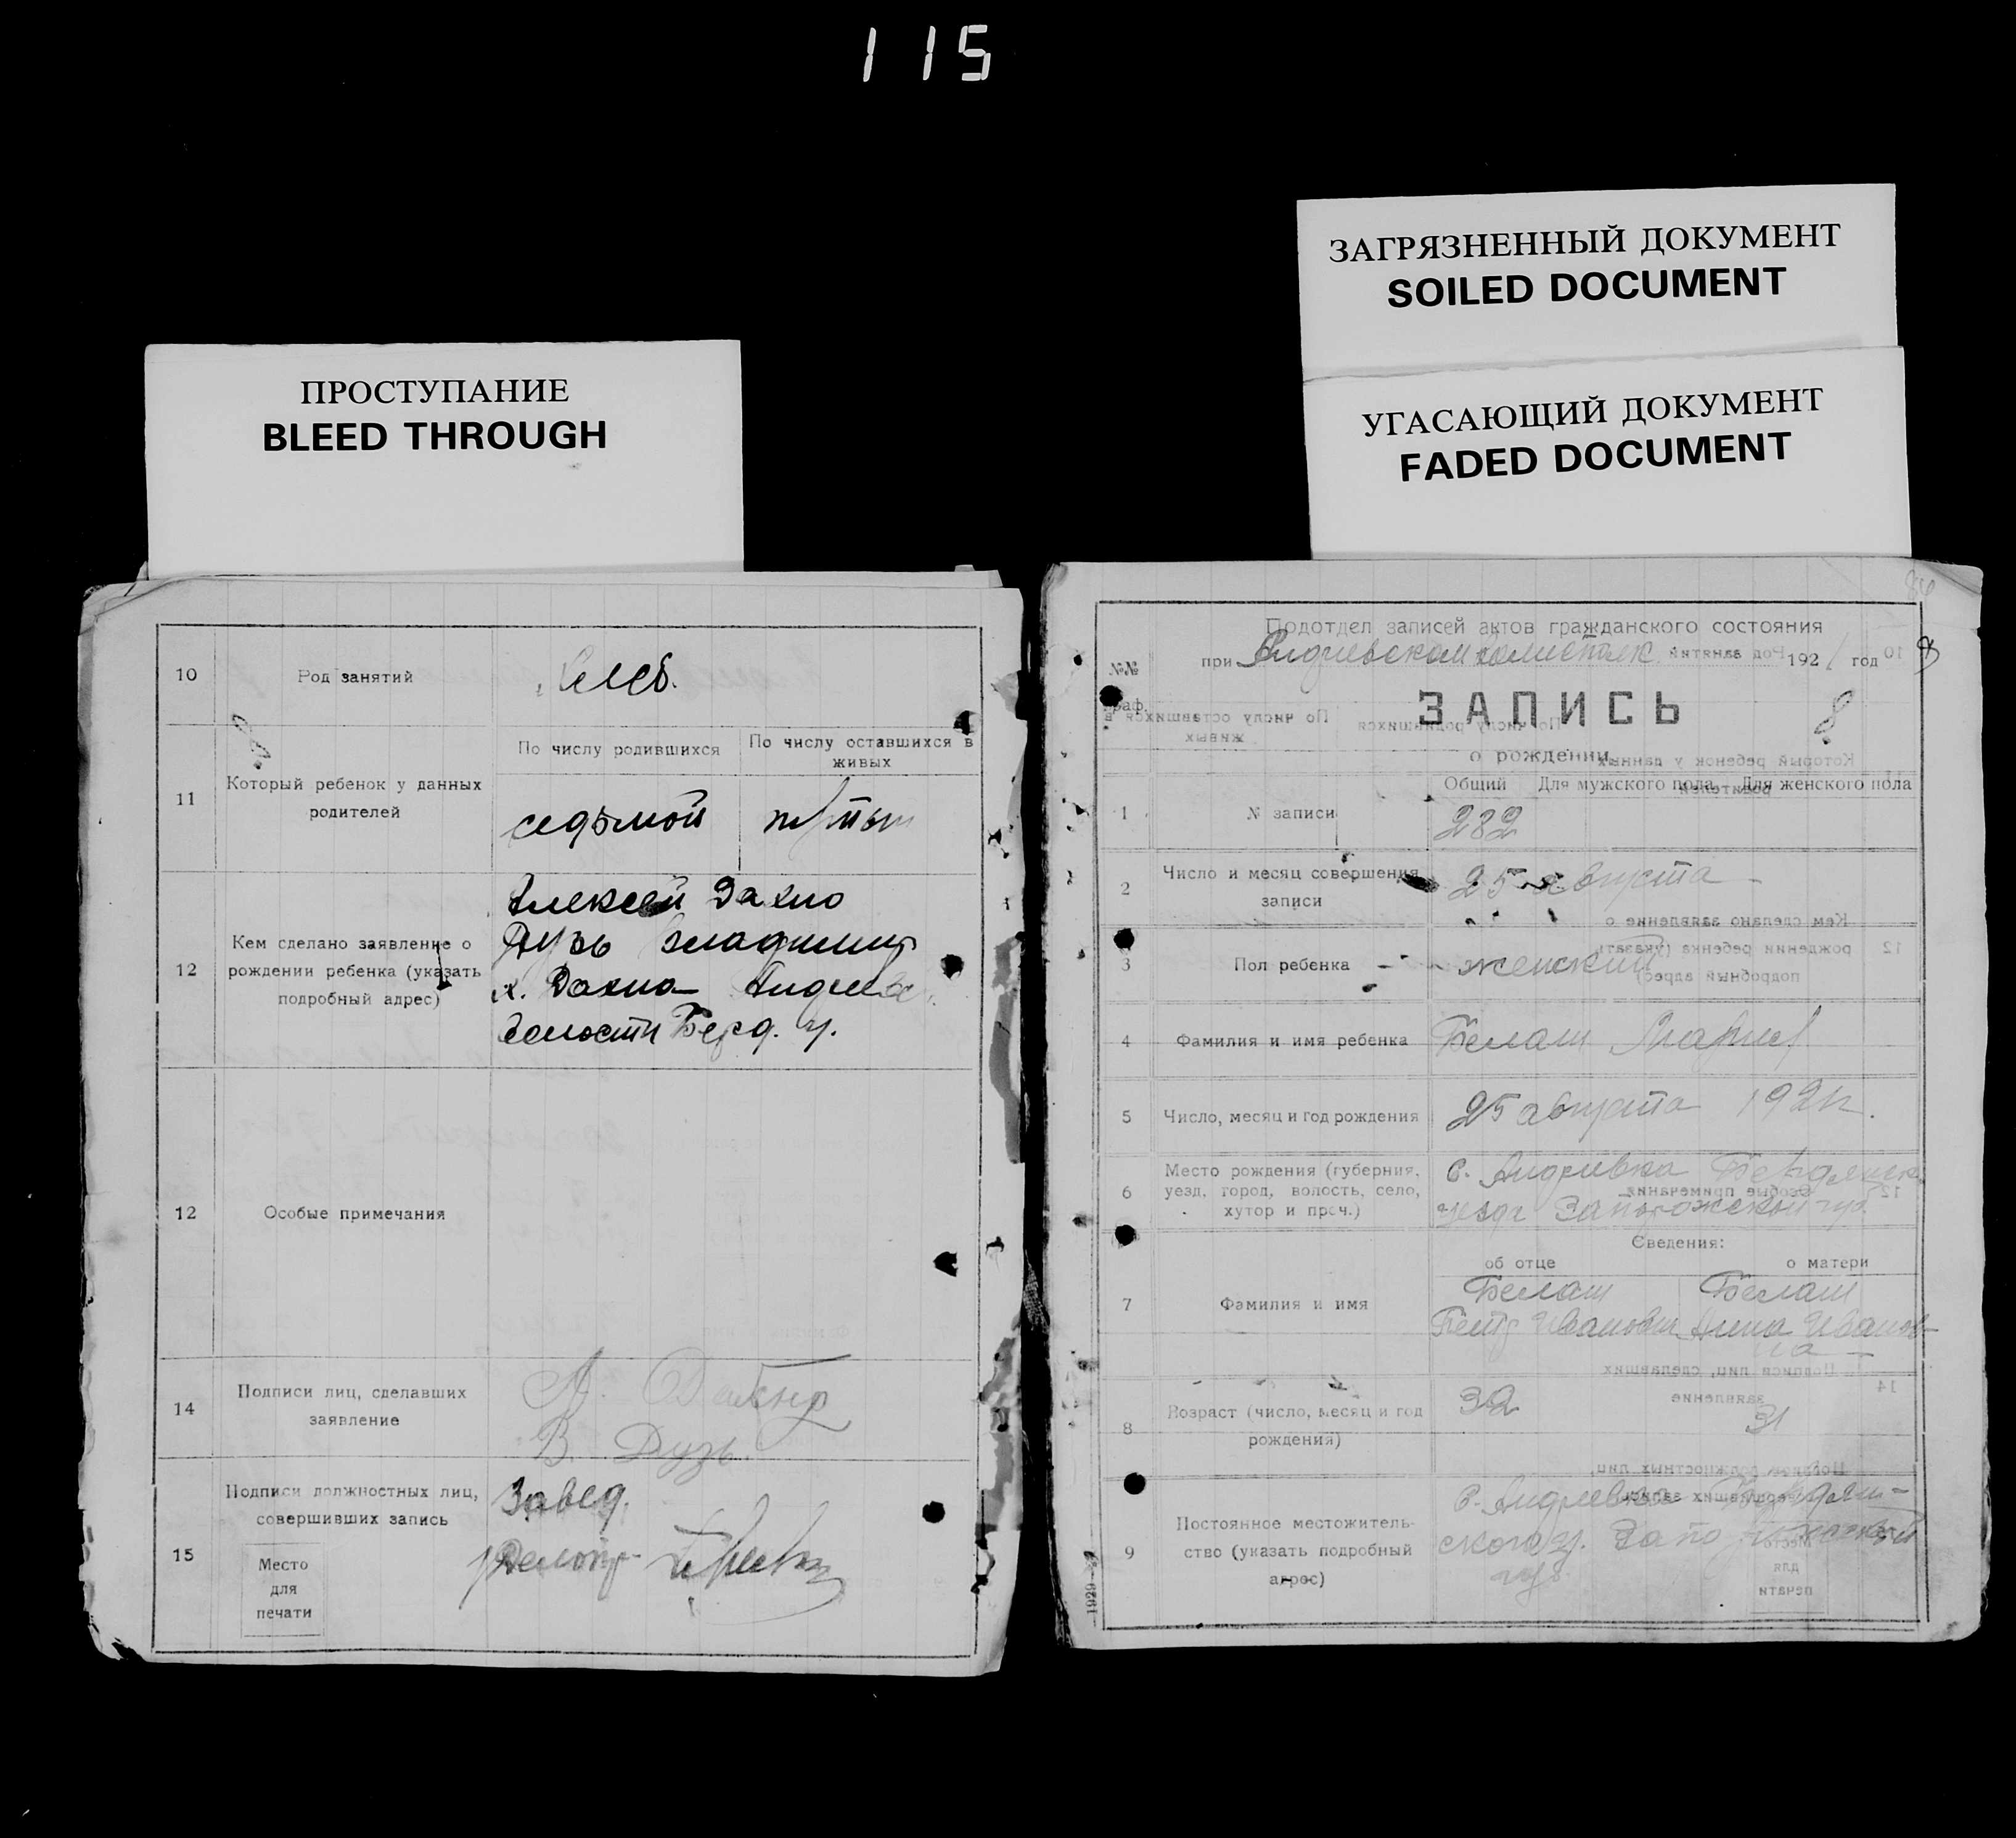 115
ПРОСТУПАНИЕ
BLEED THROUGH
ЗАГРЯЗНЕННЫЙ ДОКУМЕНТ
SOILED DOCUMENT
УГАСАЮЩИЙ ДОКУМЕНТ
FADED DOCUMENT
10
Род занятий
Хлеб.
11
Который ребенок у данных
родителей
По числу родившихся
седьмой
По числу оставшихся в
живых
12
Кем сделано заявление о
рождении ребенка (указать
подробный адрес)
Алексей Дахно
Дузь Владимир
х. Дахна Андреев.
волости Берд. у.
12
Особые примечания
14
Подписи лиц, сделавших
заявление
А. Дахно
В. Дузь.
15
Подписи должностных лиц,
совершивших запись
Место
для
печати
Завед.
Подотдел записей актов гражданского состояния
при Андреевском 1921 год
№№
граф.
ЗАПИСЬ
о рождении
Общий Для мужского пола Для женского пола
1
№ записи
282
2
Число и месяц совершения
записи
25 августа
3
Пол ребенка
женский
4
Фамилия и имя ребенка
Белаш Мария
5
Число, месяц и год рождения
25 августа 1921г.
6
Место рождения (губерния,
уезд, город, волость, село,
хутор и проч.)
с. Андреевка Бердянск.
уезда Запорожской губ.
Сведения:
об отце
о матери
7
Фамилия и имя
Белаш
Петр Иванович
Белаш
Анна Иванов-
на
8
Возраст (число, месяц и год
рождения)
32
31
9
Постоянное местожитель-
ство (указать подробный
адрес)
с. Андреевка Бердян-
ского у. Запорожской
губ.